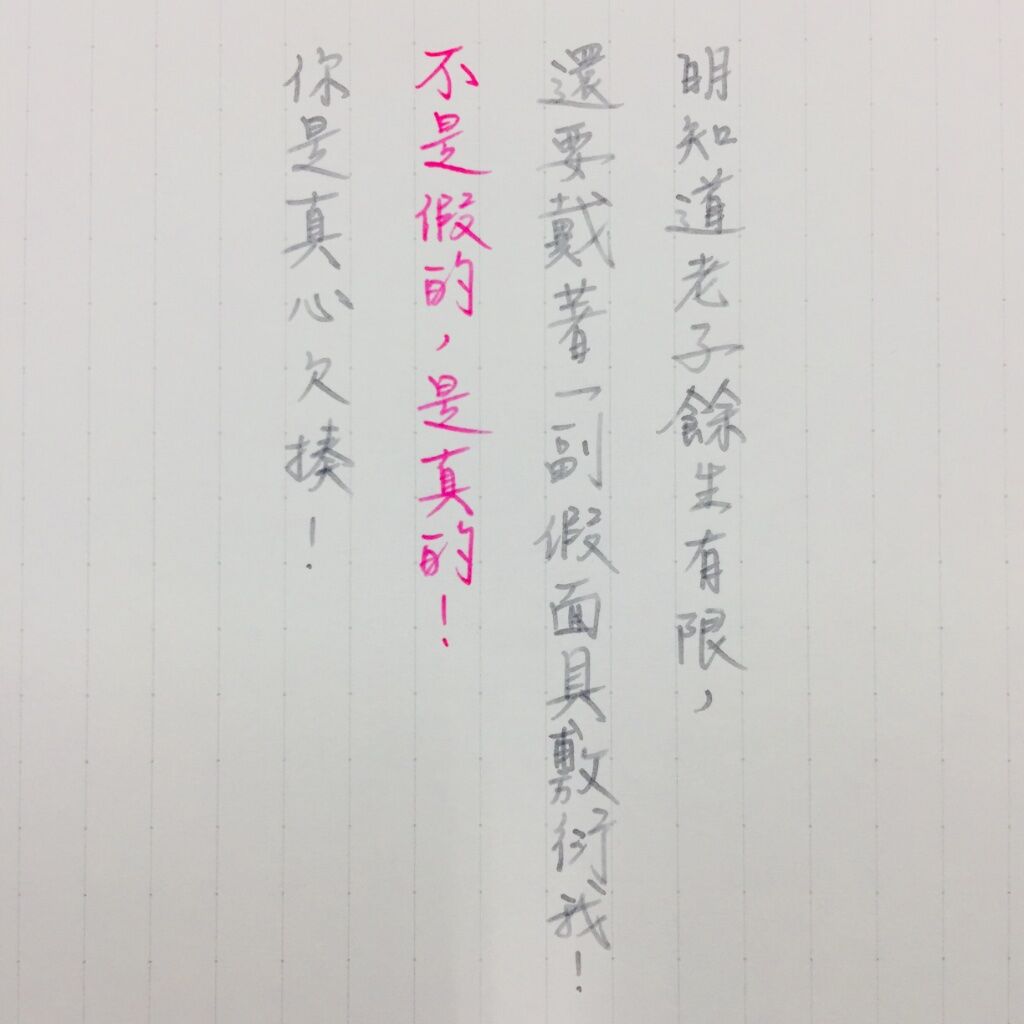 明知道老子餘生有限，
還要戴著一副假面具敷衍我！
不是假的，是真的！
你是真心欠揍！